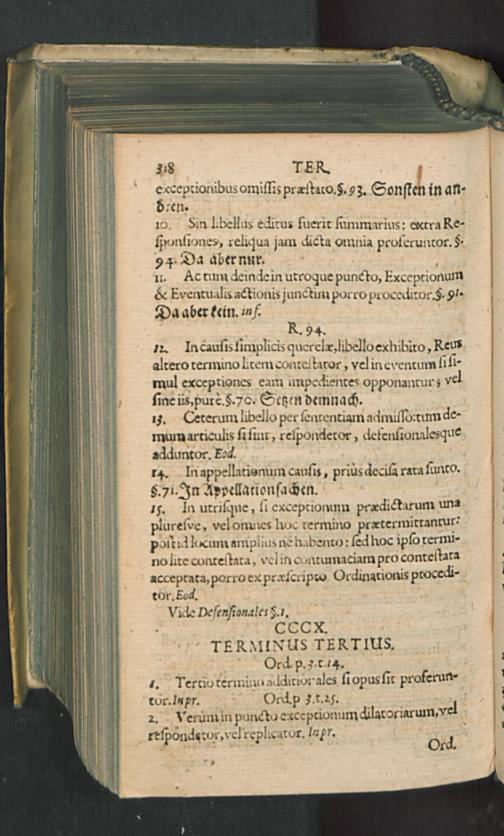 318 TER.
exceptionibus omissis præstato.§.93. Sonsten in an-
dren.
10. Sin libellus editus fuerit summarius: extra Re-
sponsiones, reliqua jam dicta omnia proferuntor. §.
94. Da aber nur.
11. Ac tum deinde in utroque puncto, Exceptionum
& Eventualis actionis junctim porro proceditor.§. 91.
Da aber kein. inf.
R. 94.
12. In causis simplicis querelæ, libello exhibito, Reus
altero termino litem contestator, vel in eventum si si-
mul exceptiones eam impedientes opponantur; vel
sine iis, purè.§.70. Setzen demnach.
13. Ceterum libello per sententiam admisso: tum de-
mum articulis si sint, respondetor, defensionalesque
adduntor. Eod.
14. In appellationum causis, priùs decisa rata sunto.
§.71. Jn Appellationsachen.
15. In utrisque, si exceptionum prædictarum una
pluresve, vel omnes hoc termino prætermittantur:
post id locum amplius ne habento: sed hoc ipso termi-
no lite contestata, vel in contumaciam pro contestata
acceptata, porro ex præscripto Ordinationis procedi-
tor. Eod.
Vide Defensionales §.1.
CCCX.
TERMINUS TERTIUS.
Ord. p.3.t.14.
1. Tertio termino additionales si opus sit proferun-
tor. In pr. Ord.p 3.t.25.
2. Verùm in puncto exceptionum dilatoriarum, vel
respondetor, vel replicator. In pr.
Ord.